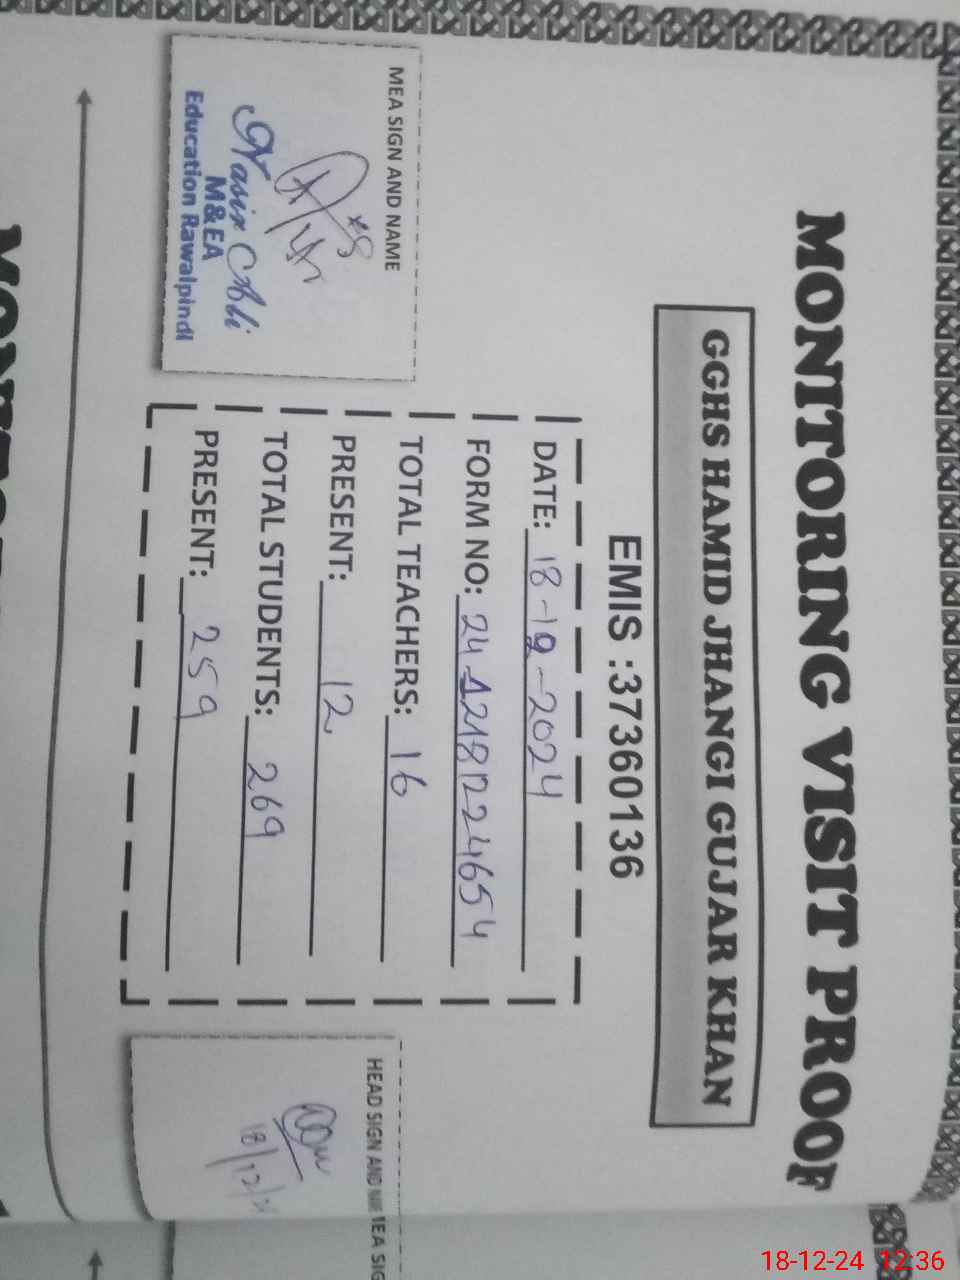 MONITORING VISIT PROOF
GGHS HAMID JHANGI GUJAR KHAN
EMIS :37360136
DATE: 18-12-2024
FORM NO: 2412181224654
TOTAL TEACHERS: 16
PRESENT: 12
TOTAL STUDENTS: 269
PRESENT: 259
MEA SIGN AND NAME
Nasir Ali
M&EA
Education Rawalpindi
HEAD SIGN AND
MEA SIG
18/12/24
18-12-24 12:36